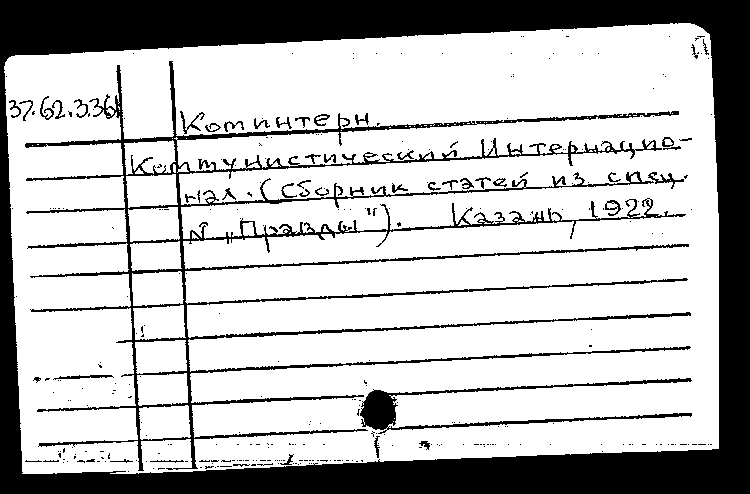 П
37.62.336
Коминтерн.
Коммунистический Интернацио-
нал. (Сборник статей из спец.
№ „Правды"). Казань, 1922.